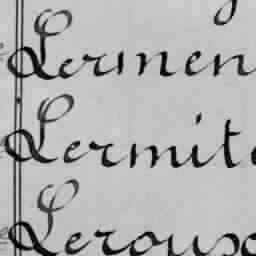 Lermen
Lermite
Leroux